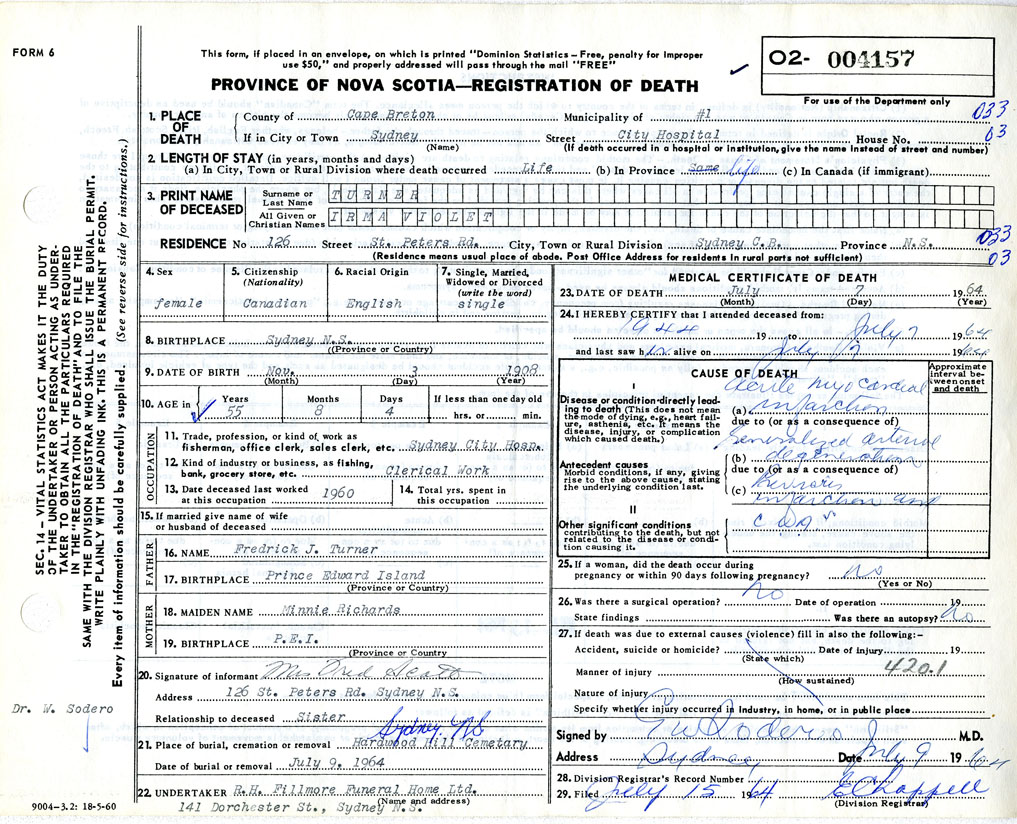 FORM 6
This form, if placed in an envelope, on which is printed "Dominion Statistics – Free, penalty for improper
use $50," and properly addressed will pass through the mail "FREE"
02- 004157
PROVINCE OF NOVA SCOTIA—REGISTRATION OF DEATH
For use of the Department only
033
03
1. PLACE OF DEATH
County of Cape Breton Municipality of #1
If in City or Town Sydney Street City Hospital House No.
(Name) (If death occurred in a hospital or institution, give the name instead of street and number)
2. LENGTH OF STAY (in years, months and days)
(a) In City, Town or Rural Division where death occurred Life (b) In Province Same life (c) In Canada (if immigrant)
3. PRINT NAME OF DECEASED
Surname or Last Name TURNER
All Given or Christian Names IRMA VIOLET
033
03
RESIDENCE No 126 Street St. Peters Rd. City, Town or Rural Division Sydney C.B. Province N.S.
(Residence means usual place of abode. Post Office Address for residents in rural parts not sufficient)
4. Sex
female
5. Citizenship
(Nationality)
Canadian
6. Racial Origin
English
7. Single, Married,
Widowed or Divorced
(write the word)
single
8. BIRTHPLACE Sydney N.S.
(Province or Country)
9. DATE OF BIRTH Nov. 3 1908
(Month) (Day) (Year)
10. AGE in
Years Months Days If less than one day old
55 8 4 hrs. or min.
OCCUPATION
11. Trade, profession, or kind of work as
fisherman, office clerk, sales clerk, etc. Sydney City Hosp.
12. Kind of industry or business, as fishing,
bank, grocery store, etc. Clerical Work
13. Date deceased last worked
at this occupation 1960
14. Total yrs. spent in
this occupation
15. If married give name of wife
or husband of deceased
FATHER
16. NAME Fredrick J. Turner
17. BIRTHPLACE Prince Edward Island
(Province or Country)
MOTHER
18. MAIDEN NAME Minnie Richards
19. BIRTHPLACE P.E.I.
(Province or Country
20. Signature of informant Mrs Fred Scott
Address 126 St. Peters Rd. Sydney N.S.
Relationship to deceased Sister
Sydney. NS
21. Place of burial, cremation or removal Hardwood Hill Cemetary
Date of burial or removal July 9, 1964
22. UNDERTAKER R.H. Fillmore Funeral Home Ltd.
(Name and address)
141 Dorchester St., Sydney N.S.
MEDICAL CERTIFICATE OF DEATH
23. DATE OF DEATH July 7 1964
(Month) (Day) (Year)
24. I HEREBY CERTIFY that I attended deceased from:
1944 19 to July 7 1964
and last saw her alive on July 7 1964
CAUSE OF DEATH
Approximate
interval be-
tween onset
and death
I
Disease or condition directly lead-
ing to death (This does not mean
the mode of dying, e.g., heart fail-
ure, asthenia, etc. It means the
disease, injury, or complication
which caused death.)
Acute myocardial
(a) infarction
due to (or as a consequence of)
Generalized arterial
(b) degeneration
due to (or as a consequence of)
Antecedent causes
Morbid conditions, if any, giving
rise to the above cause, stating
the underlying condition last.
(c)
infarction and
II
Other significant conditions
contributing to the death, but not
related to the disease or condi-
tion causing it.
25. If a woman, did the death occur during
pregnancy or within 90 days following pregnancy? no
(Yes or No)
26. Was there a surgical operation? no Date of operation 19
State findings Was there an autopsy? no
27. If death was due to external causes (violence) fill in also the following:–
Accident, suicide or homicide? Date of injury 19
(State which)
Manner of injury 420.1
(How sustained)
Nature of injury
Specify whether injury occurred in industry, in home, or in public place
Signed by W Sodero M.D.
Address Sydney, Date July 9 1964
28. Division Registrar's Record Number
29. Filed July 15 1964 E Chappell
(Division Registrar)
SEC. 14 – VITAL STATISTICS ACT MAKES IT THE DUTY
OF THE UNDERTAKER OR PERSON ACTING AS UNDER-
TAKER TO OBTAIN ALL THE PARTICULARS REQUIRED
IN THE "REGISTRATION OF DEATH" AND TO FILE THE
SAME WITH THE DIVISION REGISTRAR WHO SHALL ISSUE THE BURIAL PERMIT.
WRITE PLAINLY WITH UNFADING INK. THIS IS A PERMANENT RECORD.
Every item of information should be carefully supplied. (See reverse side for instructions.)
Dr. W. Sodero
9004–3.2: 18-5-60